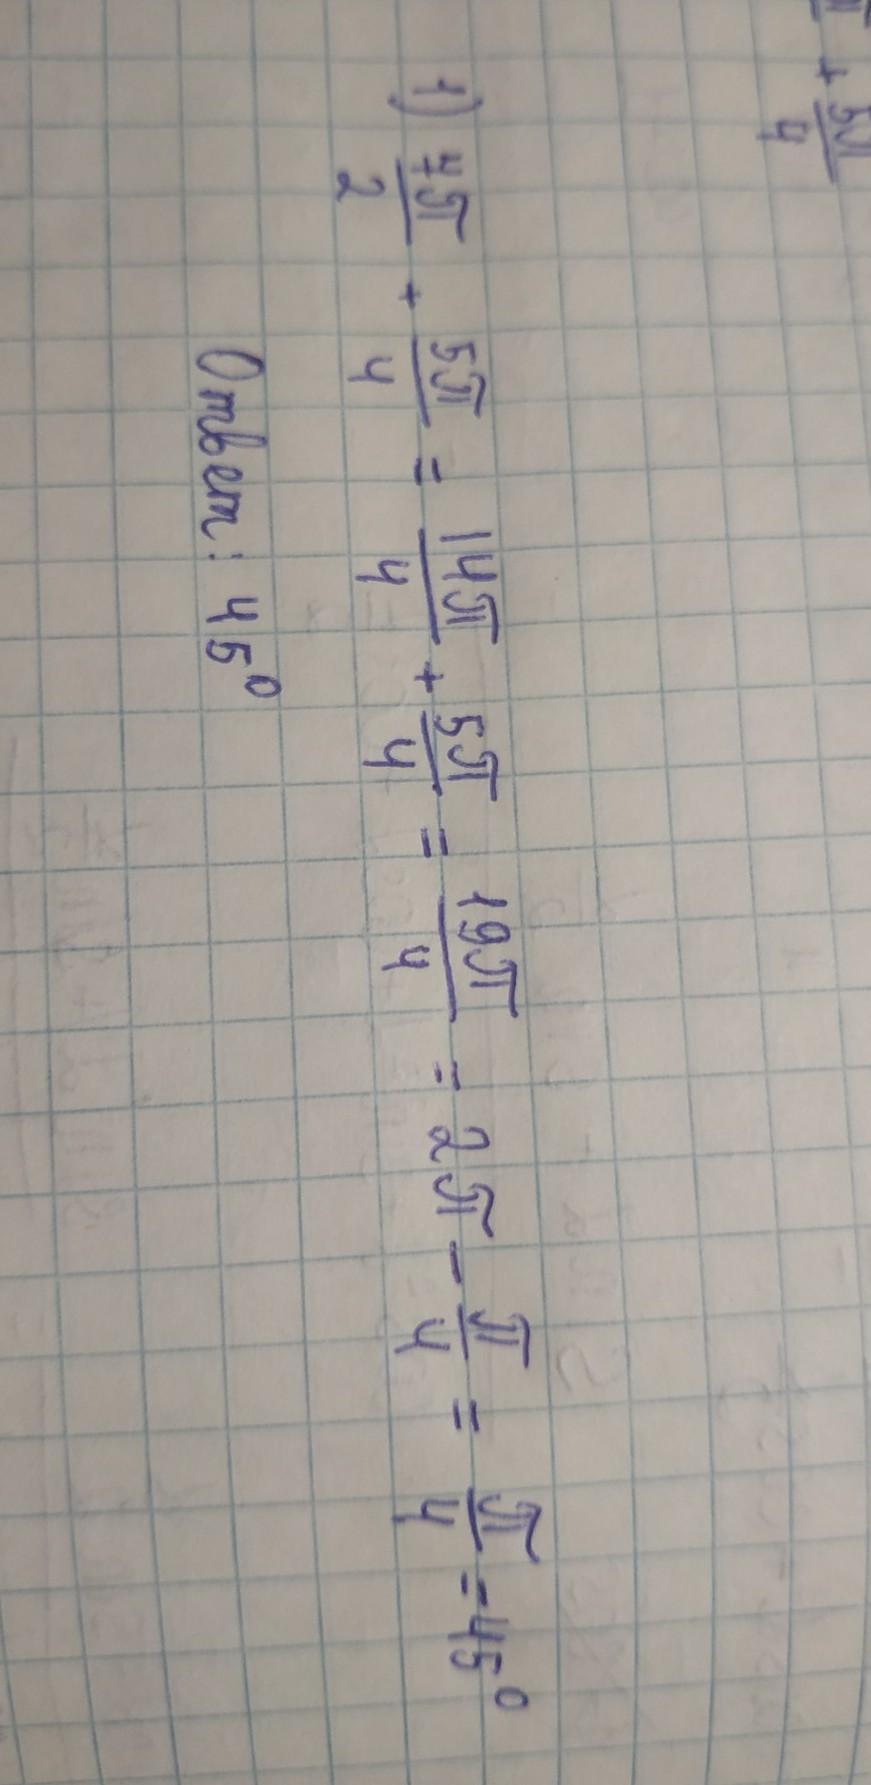 π + 5π/4
1) 7π/2 + 5π/4 = 14π/4 + 5π/4 = 19π/4 = 2π - π/4 = π/4 = 45°
Ответ: 45°